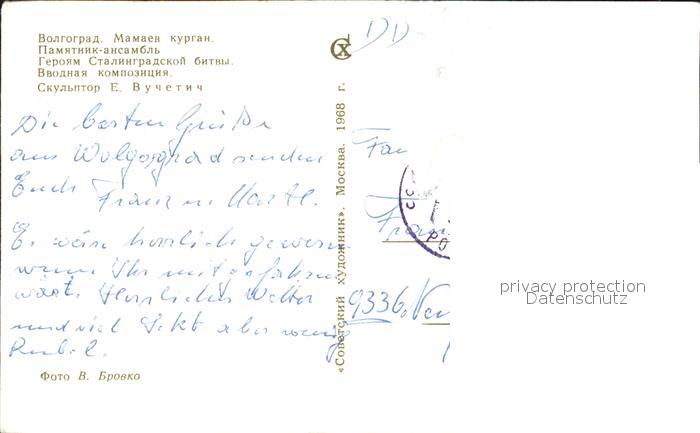 Волгоград. Мамаев курган.
Памятник-ансамбль
Героям Сталинградской битвы.
Вводная композиция.
Скульптор Е. Вучетич
Die besten Grüße
aus Wolgograd senden
Euch Franz u.
Es wäre herrlich gewesen
wenn Ihr mitgefahren
wärt. Herrliches Wetter
und viel Sekt aber wenig
Rubel.
Фото В. Бровко
«Советский художник». Москва. 1968 г.
СХ
DD-
Fam
9336
privacy protection
Datenschutz